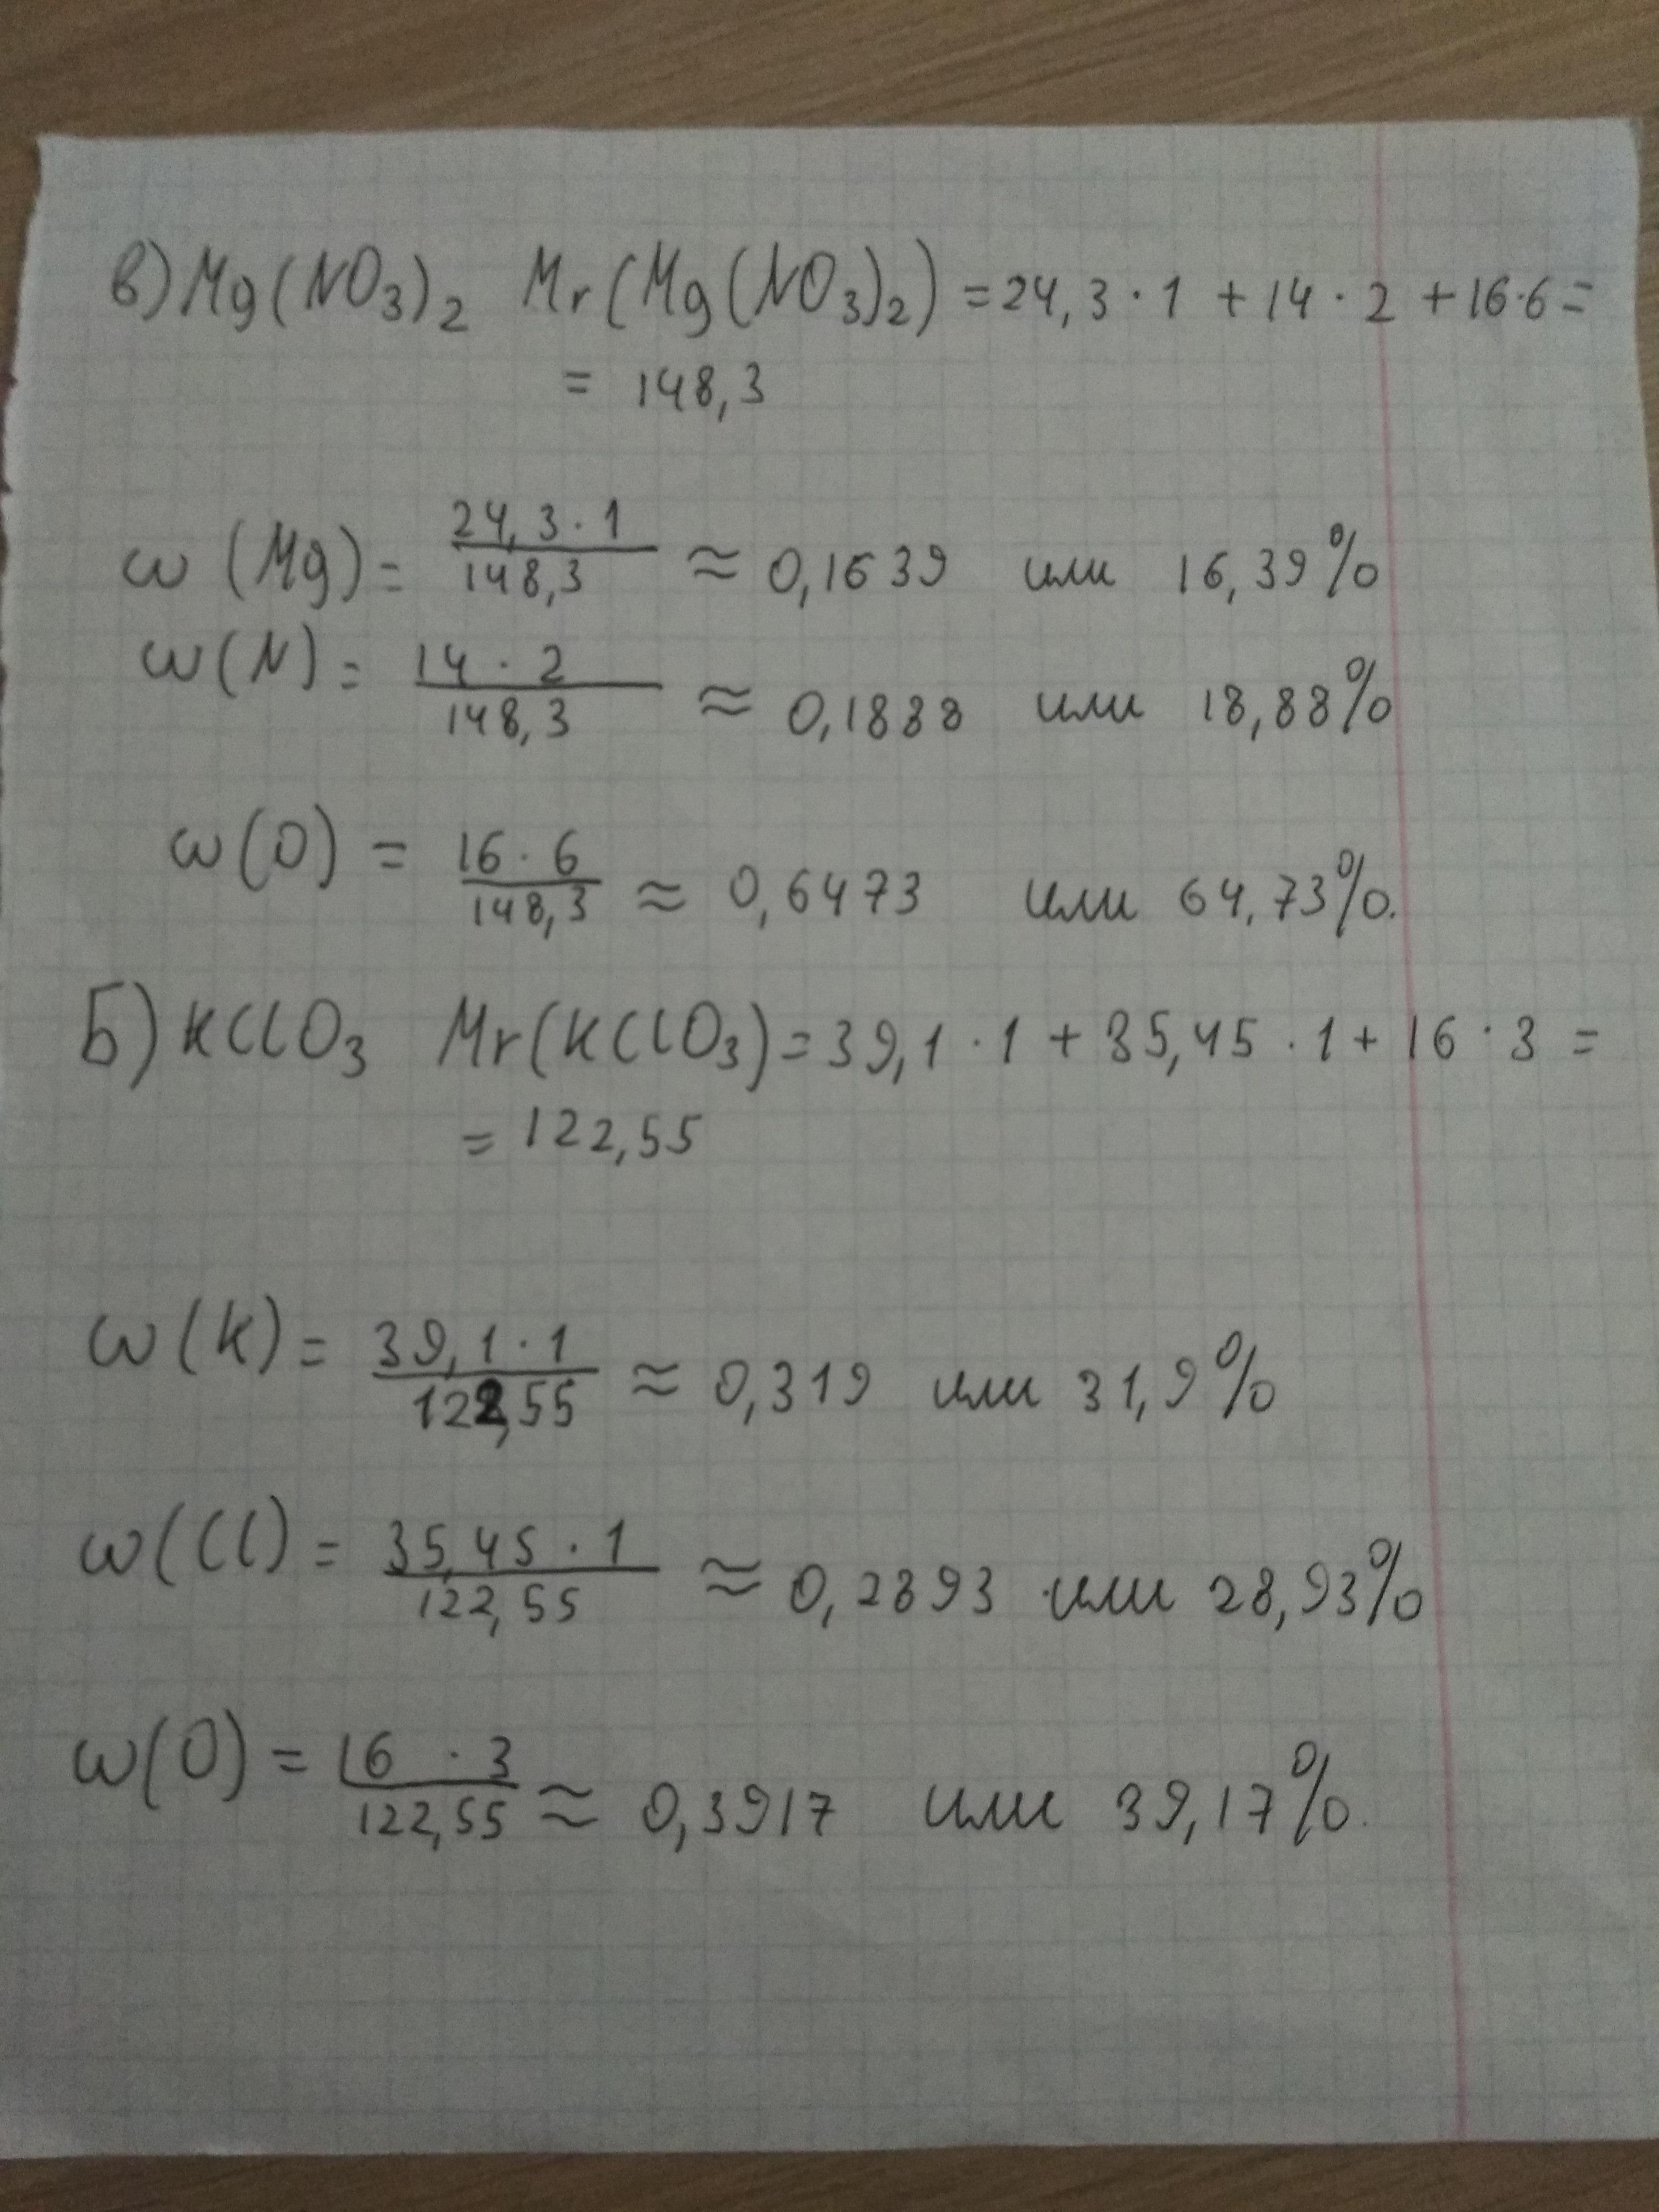 в) Mg(NO₃)₂ Mr(Mg(NO₃)₂) = 24,3 · 1 + 14 · 2 + 16·6 =
= 148,3
ω (Mg) = 24,3 · 1 / 148,3 ≈ 0,1639 или 16,39%
ω(N) = 14 · 2 / 148,3 ≈ 0,1888 или 18,88%
ω(O) = 16 · 6 / 148,3 ≈ 0,6473 или 64,73%.
Б) KClO₃ Mr(KClO₃) = 39,1 · 1 + 35,45 · 1 + 16 · 3 =
= 122,55
ω(K) = 39,1 · 1 / 122,55 ≈ 0,319 или 31,9%
ω(Cl) = 35,45 · 1 / 122,55 ≈ 0,2893 или 28,93%
ω(O) = 16 · 3 / 122,55 ≈ 0,3917 или 39,17%.